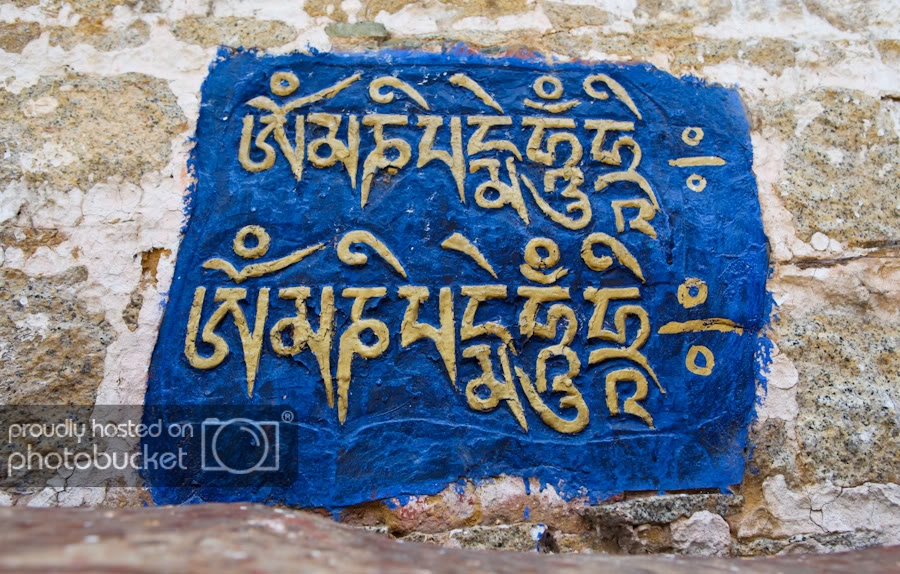 ཨོཾམཎིཔདྨེཧཱུྃཧྲཱི༔
ཨོཾམཎིཔདྨེཧཱུྃཧྲཱི༔
proudly hosted on
photobucket ®